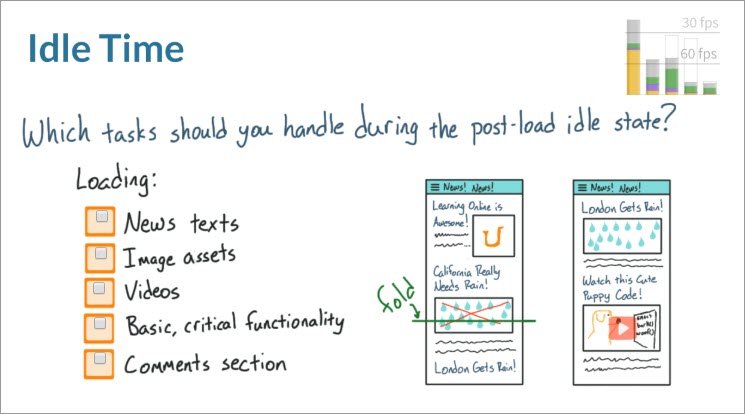 Idle Time
30 fps
60 fps
Which tasks should you handle during the post-load idle state?
Loading:
News texts
Image assets
Videos
Basic, critical functionality
Comments section
fold
News! News!
Learning Online is
Awesome!
U
California Really
Needs Rain!
London Gets Rain!
News! News!
London Gets Rain!
Watch this Cute
Puppy Code!